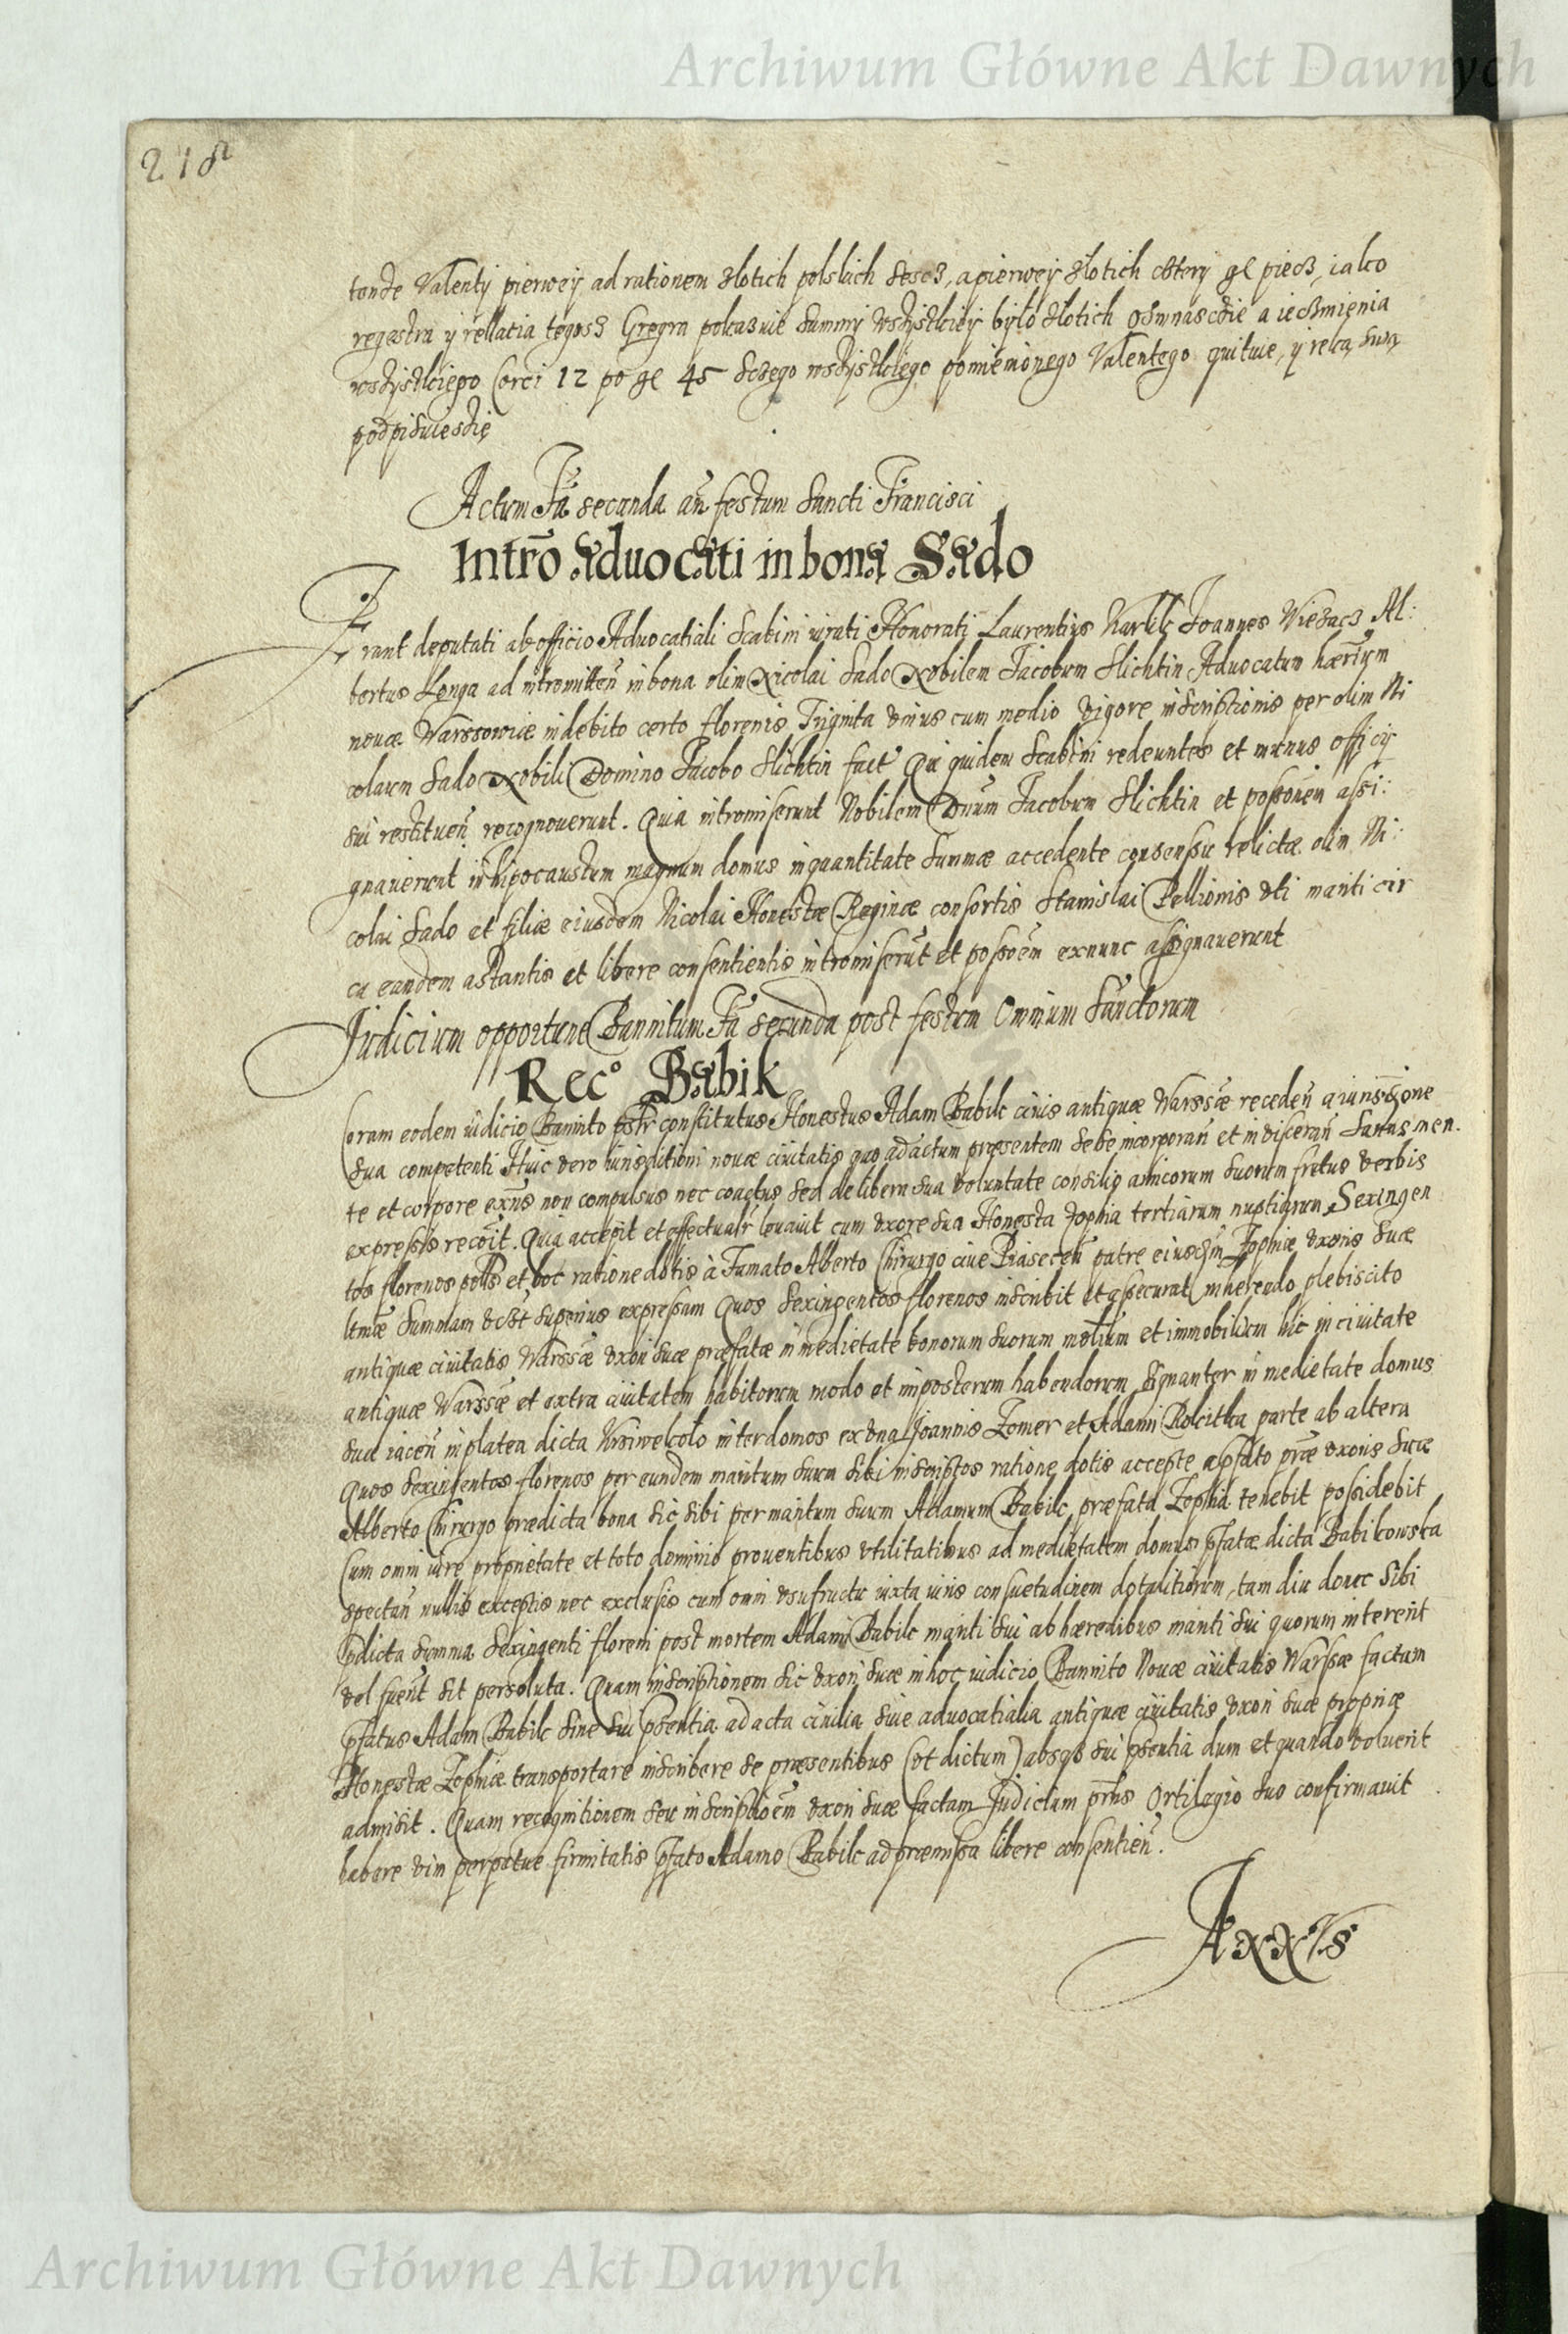 Archiwum Główne Akt Dawnych
218
tonde Valenty pierwey ad rationem zlotich polskich sescz, a pierwey zlotich cztery gl piecz, iako
regestra y rellatia tegosz Gregra pokazuie summy wszystkiey bylo zlotich osmnascdzie a ieczmienia
wszystkiego Corci 12 po gl 45 sczego wszystkiego pomienionego Valentego quituie, y reką swą
podpisuie sdzię
Actum Fa secunda añ festum Sancti Francisci
Intrõ advocati in bona Sado
Erant deputati ab officio Advocatiali Scabini iurati Honorati Laurentius Karlik Joannes Wiezacz Al:
bertus Longa ad intromitteñ in bona olim Nicolai Sado Nobilem Jacobum Slichtin Advocatum hæredum
nouæ Warssowiæ in debito certo florenis Triginta vnius cum medio vigore inscriptionis per olim Ni
colaum Sado Nobili Domino Jacobo Slichtin fact Qui quidem Scabini redeuntes et munus officij
sui restitueñ recognouerunt. Quia intromiserunt Nobilem Dnum Jacobum Slichtin et possonem assi:
gnauerunt in hipocaustum magnum domus in quantitate summæ accedente consensu relictæ olim Ni:
colai Sado et filiæ eiusdem Nicolai Honestæ Reginæ consortis Stanislai Pellionis vti mariti cir
ca eandem astantis et libere consentientis intromiserũt et possoẽm exnunc assignauerunt
Judicium opportune Bannitum Fa secunda post festum Omnium Sanctorum
Recº Babik
Coram eodem iudicio Bannito pstr constitutus Honestus Adam Babik ciuis antiquæ Warssæ recedeñ a iurisdone
sua competenti Huic vero iurisditioni nouæ ciuitatis quo ad actum præsentem sese incorporañ et inviscerañ Sanus men.
te et corpore exñs non compulsus nec coactus sed de libera sua voluntate consilio amicorum suorum fretus verbis
expressis recoit. Quia accepit et effectualr leuauit cum vxore sua Honesta Zophia tertiarum nuptiarum Sexingen
tos florenos polls et hoc ratione dotis à Famato Alberto Chirurgo ciue Piaseceñ patre eiusdm Zophiæ vxoris suæ
ltmæ summam vt st superius expressam Quos sexingentos florenos inscribit et assecurat inhærendo plebiscito
antiquæ ciuitatis Warssæ vxori suæ præfatæ in medietate bonorum suorum molium et immobilium hic in ciuitate
antiquæ Warssæ et extra ciuitatem habitorum modo et in posterum habendorum Signanter in medietate domus
sua iaceñ in platea dicta Krsiwekolo inter domos ex vna Joannis Zomer et Adami Rokitka parte ab altera
Quos sexingentos florenos per eundem maritum suum sibi inscriptos ratione dotis accepte a pfato prẽ vxoris suæ
Alberto Chirurgo prædicta bona sic sibi per maritum suum Adamum Babik præfata Zophia tenebit possidebit
Cum omni iure proprietate et toto dominio prouentibus vtilitatibus ad medietatem domus pfatæ dicta Babikowska
spectañ nullis exceptis nec exclusis cum omni vsufructu iuxta iuris consuetudinem dotalitiorum, tam diu donec sibi
pdicta summa sexingenti floreni post mortem Adami Babik mariti sui ab hæredibus mariti sui quorum intererit
vel fuerit sit persoluta. Quam inscriptionem sic vxori suæ in hoc iudicio Bannito Nouæ ciuitatis Warssæ factam
pfatus Adam Babik sine sui psentia ad acta ciuilia siue aduocatialia antiquæ ciuitatis vxori suæ propriæ
Honestæ Zophiæ transportare inscribere se præsentibus (vt dictum) absqs sui psentia dum et quando voluerit
admisit. Quam recognitionem seu inscriptioẽm vxori suæ factam Judicium prñs Ortilegio suo confirmauit
habere vim perpetuæ firmitatis pfato Adamo Babik ad præmissa libere consentieñ.
Archiwum Główne Akt Dawnych